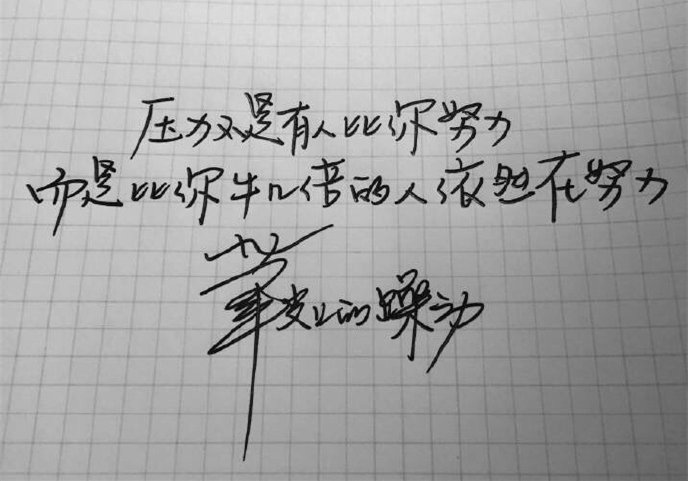 压力不是有人比你努力
而是比你牛几倍的人依然在努力
笔尖上的躁动